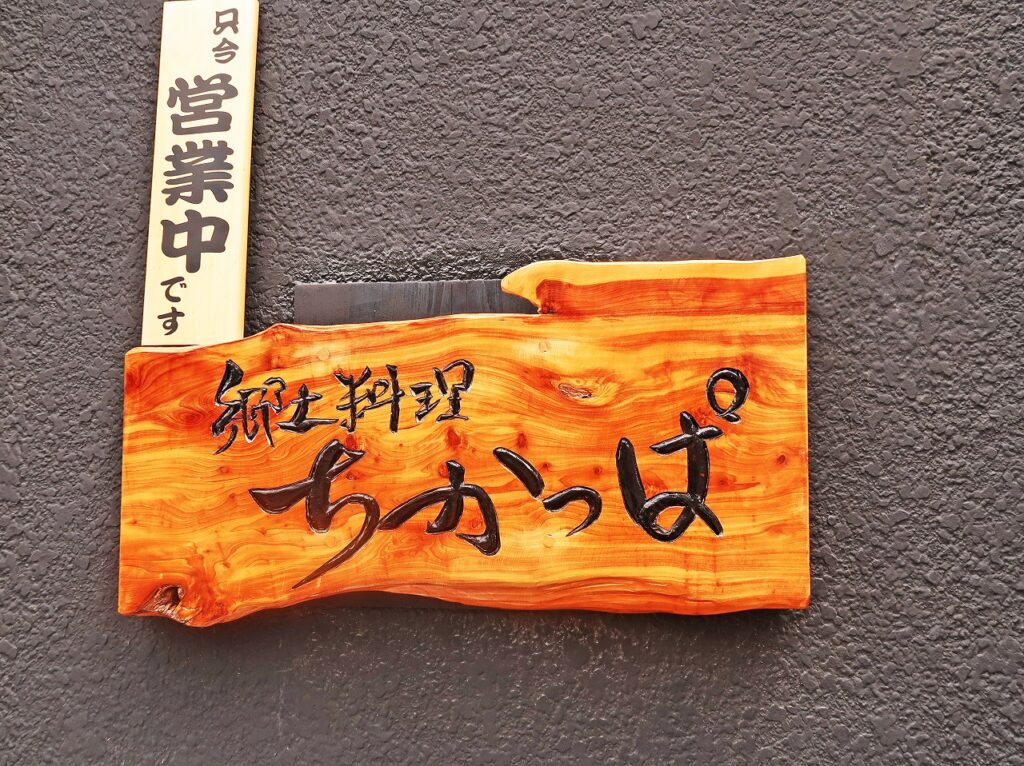 只今営業中です
郷土料理
ちかっぱ